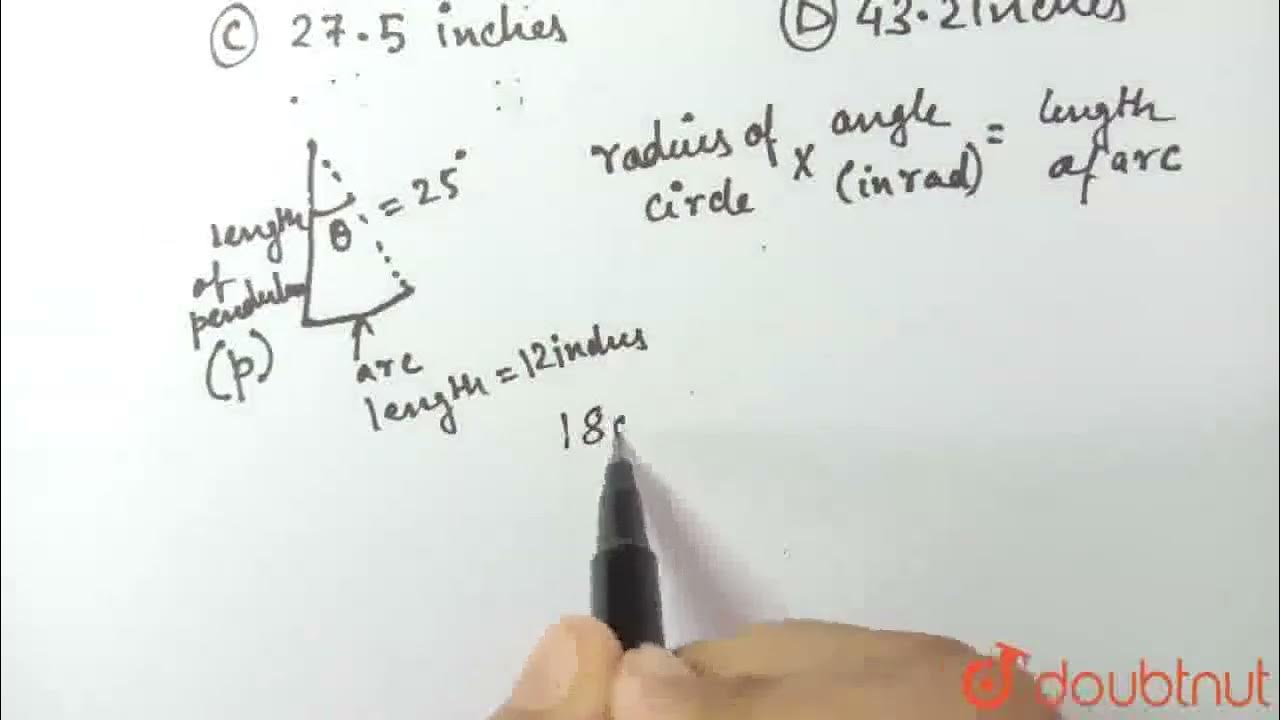 Ⓒ 27.5 inches
Ⓓ 43.2 inches
radius of circle × angle (in rad) = length of arc
θ = 25°
length of pendulum (p)
arc length = 12 inches
18
doubtnut